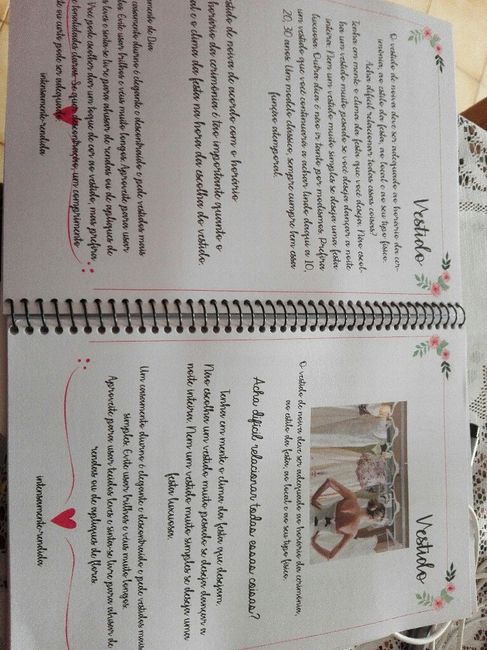 Vestido
O vestido de noiva deve ser adequado ao horário da cer-
imônia, ao estilo da festa, ao local e ao seu tipo físico.
Acha difícil relacionar todas essas coisas?
Tenha em mente o clima da festa que você deseja. Não escol-
ha um vestido muito pesado se você deseja dançar a noite
inteira. Nem um vestido muito simples se deseja uma festa
luxuosa. Outra dica é não ir tanto por modismos. Prefira
um vestido que você continuará a achar lindo daqui a 10,
20, 30 anos. Um modelo clássico, sempre cumpre bem essa
função atemporal.
de noiva de acordo com o horário
horário da cerimônia é tão importante quanto o
e o clima da festa na hora da escolha do vestido.
de Dia
casamento diurno é elegante e descontraído e pede vestidos mais
Evite usar brilhos e véus muito longos. Aproveite para usar
leves e sinta-se livre para abusar de rendas ou de apliques de
Você pode escolher dar um toque de cor no vestido, mas prefira
tonalidades claras. Se quer descontração, um comprimento
curto pode ser adequado
intensamente rendida
Vestido
O vestido de noiva deve ser adequado ao horário da cerimônia,
ao estilo da festa, ao local e ao seu tipo físico.
Acha difícil relacionar todas essas coisas?
Tenha em mente o clima da festa que desejam.
Não escolha um vestido muito pesado se deseja dançar a
noite inteira. Nem um vestido muito simples se deseja uma
festa luxuosa.
Um casamento diurno é elegante e descontraído e pede vestidos mais
simples. Evite usar brilhos e véus muito longos.
Aproveite para usar tecidos leves e sinta-se livre para abusar de
rendas ou de apliques de flores.
intensamente rendida